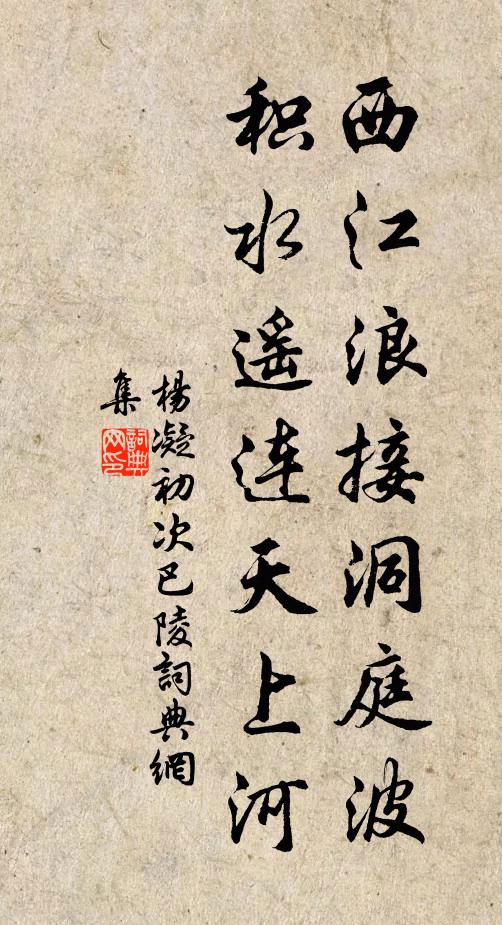 西江浪接洞庭波
积水遥连天上河
楊凝初次巴陵詞典網
集
詞典
网印